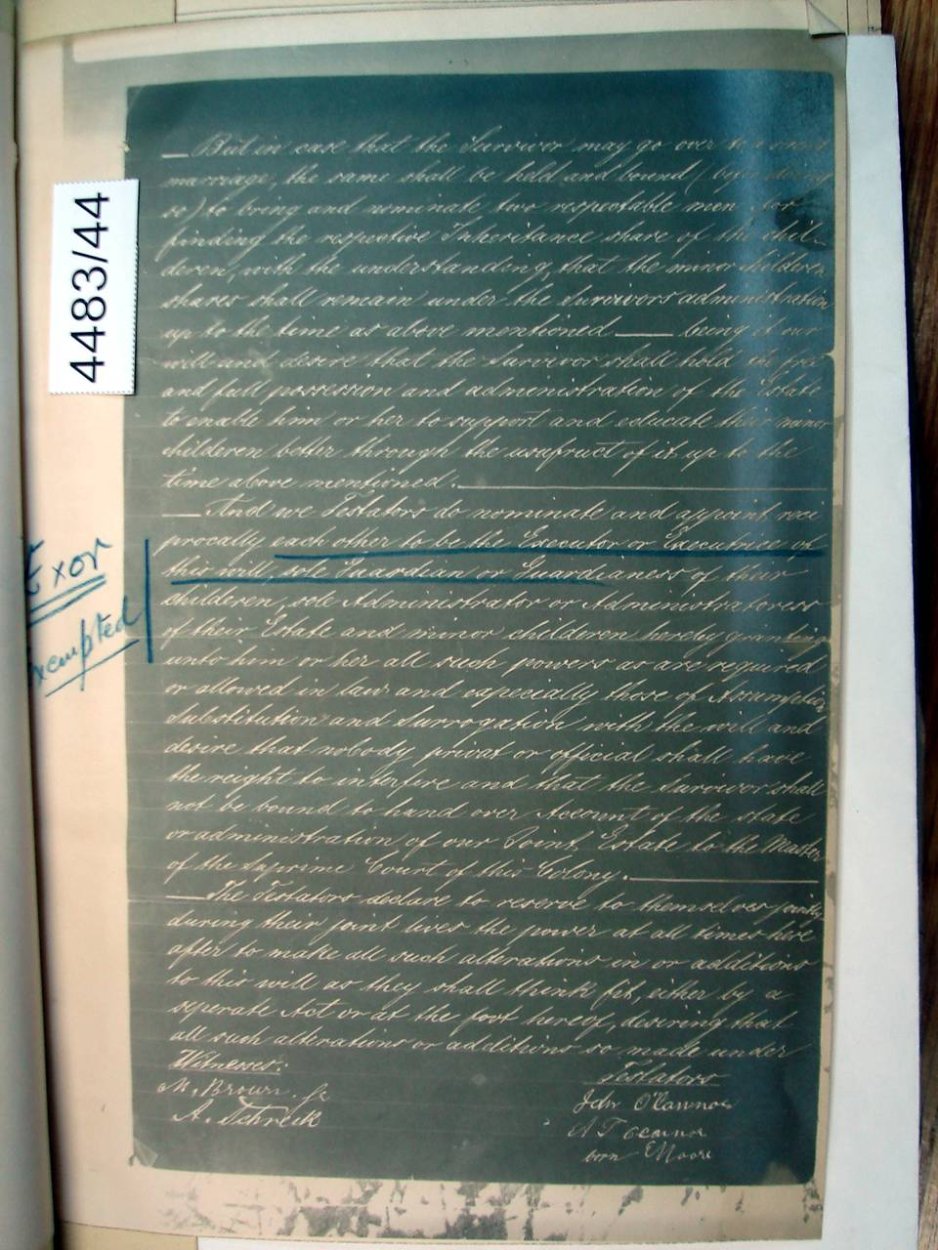 4483/44
— But in case that the Survivor may go over to a
marriage, the same shall be held and bound (before doing
so) to bring and nominate two respectable men for
finding the respective Inheritance share of the chil-
deren, with the understanding, that the minor childeren
shares shall remain under the Survivors administration
up to the time as above mentioned — being it our
will and desire that the Survivor shall hold in free
and full possession and administration of the Estate
to enable him or her to support and educate their minor
childeren better through the usufruct of it up to the
time above mentioned.—
— And we Testators do nominate and appoint reci
procally each other to be the Executor or Executrice of
this will, sole Guardian or Guardianess of their
childeren, sole Administrator or Administratoress
of their Estate and minor childeren hereby granting
unto him or her all such powers as are required
or allowed in law and especially those of Assumption,
Substitution and Surrogation with the will and
desire that nobody privat or official shall have
the reight to interfire and that the Survivor shall
not be bound to hand over Account of the state
or administration of our Joint Estate to the Master
of the Supreme Court of this Colony.—
— The Testators declare to reserve to themselves jointly
during their joint lives the power at all times here
after to make all such alterations in or additions
to this will as they shall think fit, either by a
seperate Act or at the foot hereof, desiring that
all such alterations or additions so made under
Witnesses:
M. Brown
A. Schreik
Testators
O'Connor
born Moore
Exor
exempted